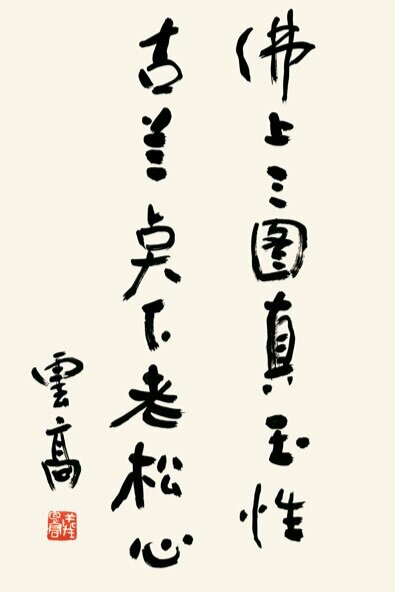 佛上三图真玉性
古兰奌下老松心
雲高